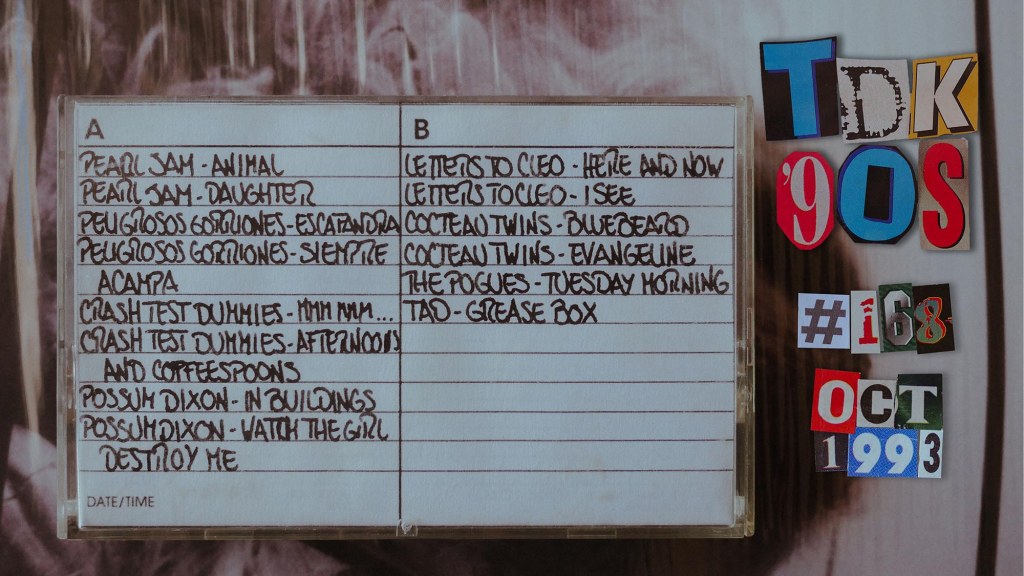 A
PEARL JAM - ANIMAL
PEARL JAM - DAUGHTER
PELIGROSOS GORRIONES - ESCAFANDRA
PELIGROSOS GORRIONES - SIEMPRE
ACAMPA
CRASH TEST DUMMIES - MMM MMM...
CRASH TEST DUMMIES - AFTERNOONS
AND COFFEESPOONS
POSSUM DIXON - IN BUILDINGS
POSSUM DIXON - WATCH THE GIRL
DESTROY ME
DATE/TIME
B
LETTERS TO CLEO - HERE AND NOW
LETTERS TO CLEO - I SEE
COCTEAU TWINS - BLUEBEARD
COCTEAU TWINS - EVANGELINE
THE POGUES - TUESDAY MORNING
TAD - GREASE BOX
TDK
'90S
#168
OCT
1993